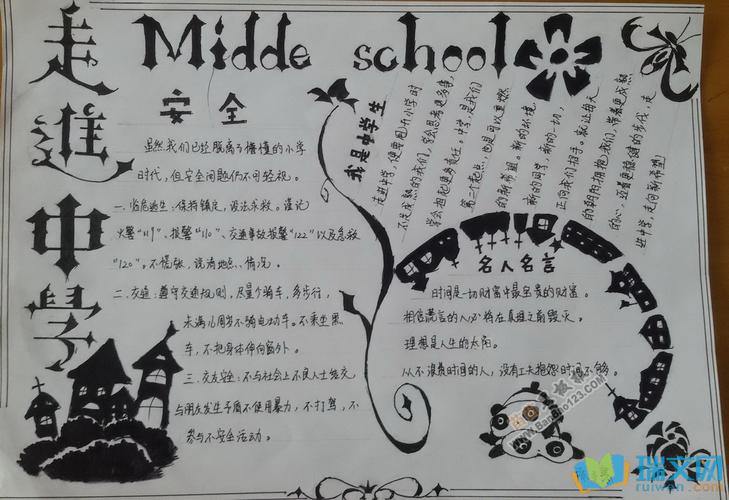 走進中学
Midde school
安全
虽然我们已经脱离了懵懂的小学
时代,但安全问题仍不可轻视。
一、临危逃生:保持镇定,设法求救。谨记
火警“119”、报警“110”、交通事故报警“122”以及急救
“120”。不慌张,说清地点、情况。
二、交通:遵守交通规则,尽量个骑车,多步行,
未满16周岁不骑电动车。不乘坐黑
车,不把身体伸向窗外。
三、交友安全:不与社会上不良人士结交
与朋友发生矛盾不使用暴力,不打骂,不
参与不安全活动。
我是中学生
走进中学,便要图小学时
不成熟的我们,学会思考更多事,
学会担起更多责任。中学,是我们
第二个起点,也是可以更燃
的新希望。新的环境,
新的同学,新的一切,
正向我们招手。就让每天
的朝阳拥抱我们,带着更成熟
的心,迈着更稳健的步伐,走
进中学,走向新希望
名人名言
时间是一切财富中最宝贵的财富。
相信谎言的人必将在真理之前毁灭。
理想是人生的太阳。
从不浪费时间的人,没有工夫抱怨时间不够。
www.Banbao123.com
瑞文网
ruiwen.com